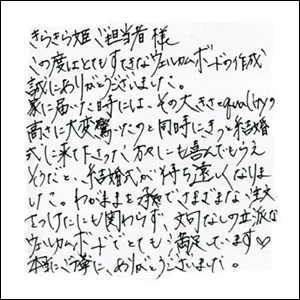 きらきら姫 ご担当者 様
この度はとてもすてきなウェルカムボードの作成
誠にありがとうございました。
家に届いた時には、その大きさとqualityの
高さに大変驚いたのと同時にきっと結婚
式に来て下さった方々にも喜んでもらえ
そうだと、結婚式が待ち遠しくなりま
した。わがままを承知でさまざまな注文
をつけたにも関わらず、文句なしの立派な
ウェルカムボードでとても満足しています♡
本当にご丁寧に、ありがとうございました。